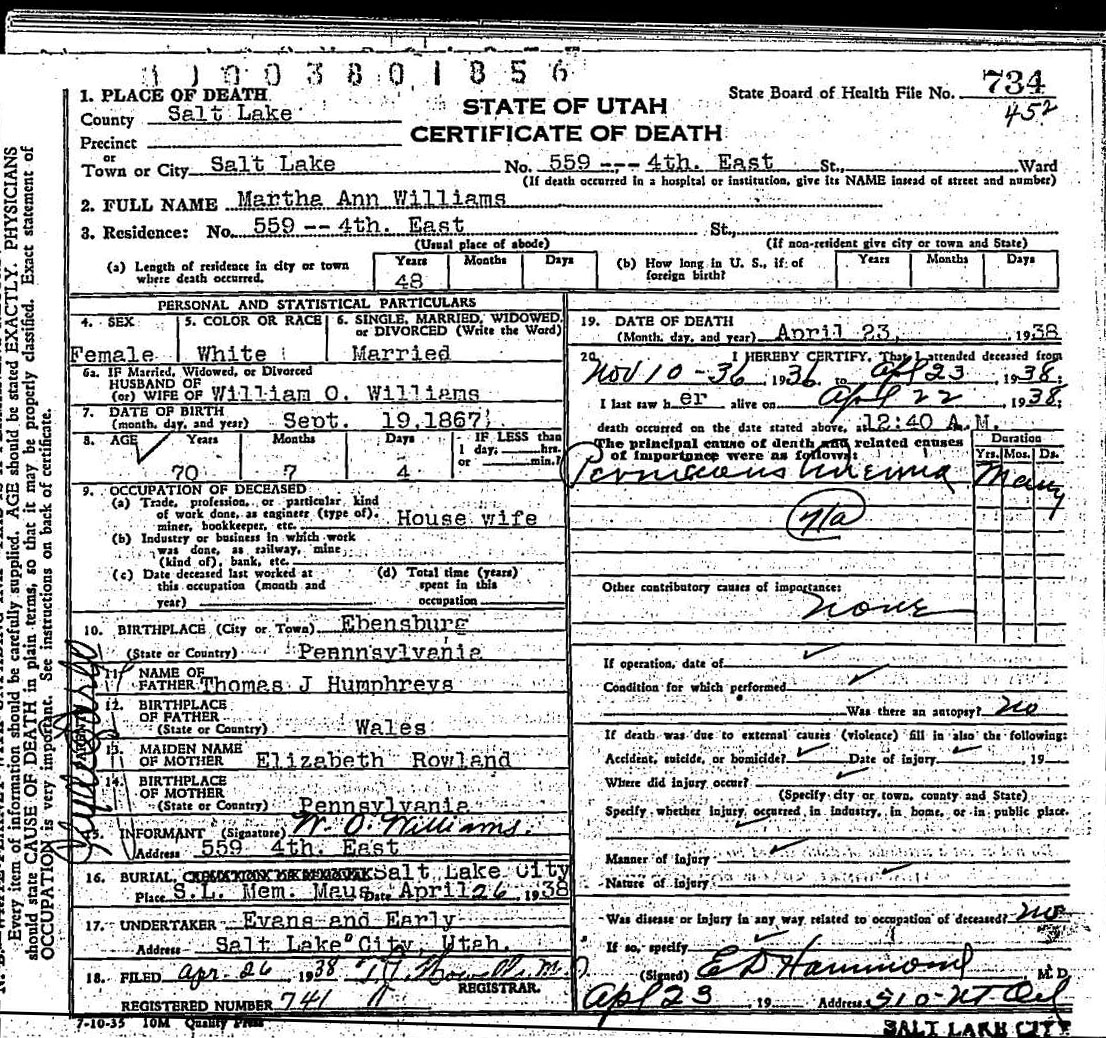 1 1 0 0 3 8 0 1 8 5 6
State Board of Health File No. 734
452
STATE OF UTAH
CERTIFICATE OF DEATH
1. PLACE OF DEATH
County Salt Lake
Precinct
or
Town or City Salt Lake No. 559 --- 4th. East St., Ward
(If death occurred in a hospital or institution, give its NAME insead of street and number)
2. FULL NAME Martha Ann Williams
3. Residence: No. 559 -- 4th. East St.,
(Usual place of abode) (If non-resident give city or town and State)
(a) Length of residence in city or town where death occurred. Years 48 Months Days
(b) How long in U. S., if of foreign birth? Years Months Days
PERSONAL AND STATISTICAL PARTICULARS
4. SEX Female
5. COLOR OR RACE White
6. SINGLE, MARRIED, WIDOWED, or DIVORCED (Write the Word) Married
6a. IF Married, Widowed, or Divorced
HUSBAND OF
(or) WIFE OF William O. Williams
7. DATE OF BIRTH
(month, day, and year) Sept. 19,1867
8. AGE Years 70 Months 7 Days 4
IF LESS than
1 day, hrs.
or min.?
9. OCCUPATION OF DECEASED
(a) Trade, profession, or particular kind
of work done, as engineer (type of),
miner, bookkeeper, etc. House wife
(b) Industry or business in which work
was done, as railway, mine
(kind of), bank, etc.
(c) Date deceased last worked at
this occupation (month and
year)
(d) Total time (years)
spent in this
occupation
10. BIRTHPLACE (City or Town) Ebensburg
(State or Country) Pennnsylvania
PARENTS
11. NAME OF
FATHER Thomas J Humphreys
12. BIRTHPLACE
OF FATHER
(State or Country) Wales
13. MAIDEN NAME
OF MOTHER Elizabeth Rowland
14. BIRTHPLACE
OF MOTHER
(State or Country) Pennsylvania
15. INFORMANT (Signature) W. O. Williams.
Address 559 4th. East
16. BURIAL, CREMATION OR REMOVAL Salt Lake City
Place S.L. Mem. Maus. Date April 26 1938
17. UNDERTAKER Evans and Early
Address Salt Lake City, Utah.
18. FILED Apr. 26 1938 M.D.
REGISTRAR.
REGISTERED NUMBER 741
7-10-35 10M Quality Press
19. DATE OF DEATH
(Month, day, and year) April 23, 1938
20. I HEREBY CERTIFY, That I attended deceased from
Nov 10-36 1936 to Apl 23, 1938;
I last saw her alive on Apl 22, 1938;
death occurred on the date stated above, at 12:40 A.M.
The principal cause of death and related causes
of importance were as follows:
Duration
Yrs. Mos. Ds.
Pernicious Anemia Many
71a
Other contributory causes of importance:
none
If operation, date of
Condition for which performed
Was there an autopsy? no
If death was due to external causes (violence) fill in also the following:
Accident, suicide, or homicide? Date of injury 19
Where did injury occur?
(Specify city or town, county and State)
Specify whether injury occurred in industry, in home, or in public place.
Manner of Injury
Nature of Injury
Was disease or injury in any way related to occupation of deceased? no
If so, specify
(Signed) E D Hammond, M D
Apl 23 19 Address 510
SALT LAKE CITY
Every item of information should be carefully supplied. AGE should be stated EXACTLY. PHYSICIANS
should state CAUSE OF DEATH in plain terms, so that it may be properly classified. Exact statement of
OCCUPATION is very important. See instructions on back of certificate.